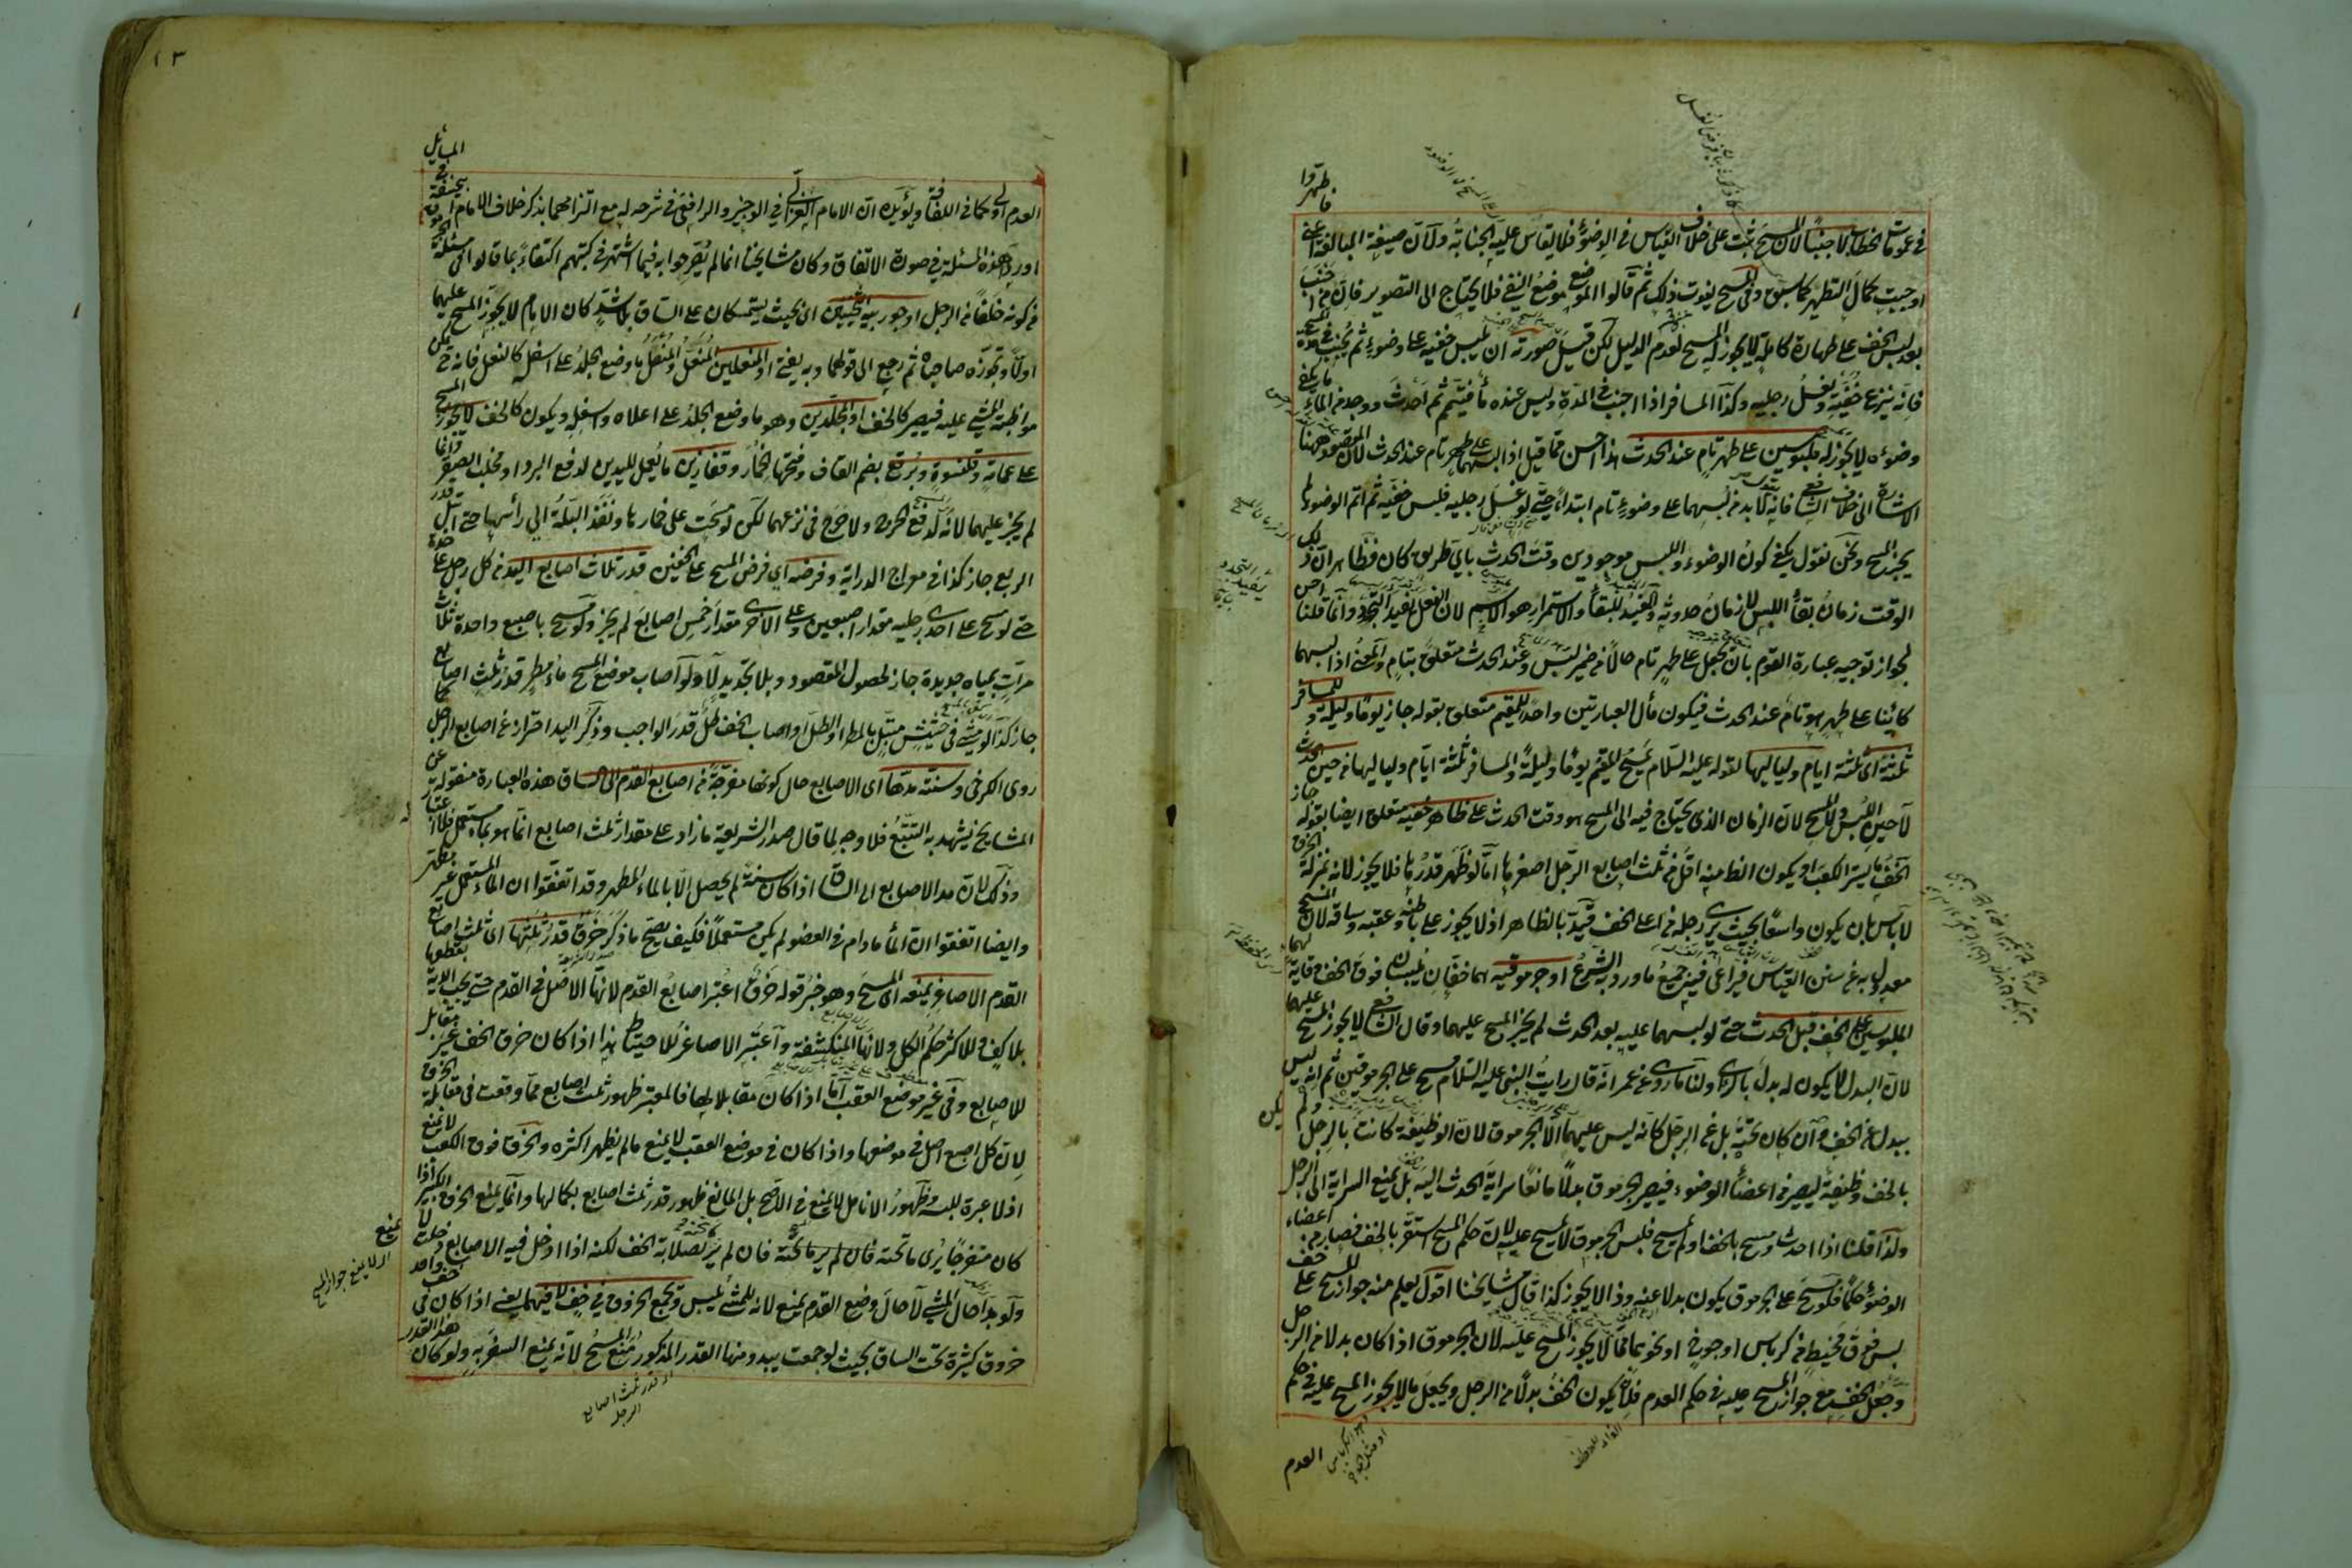 فاطهروا
في عمومات الخطاب لا جنبا لأن المسح ثبت على خلاف القياس في الوضوء فلا يقاس عليه الجنابة ولأن صيغة المبالغة
اوجبت كمال التطهر كما سبق وفي المسح يفوت ذلك ثم قالوا الموضع موضع النفي فلا يحتاج الى التصوير فان من اجنب
بعد لبس الخف على طهارة كاملة لا يجوز له المسح لعدم الدليل لكن قيل صورته ان يلبس خفيه على وضوء ثم يجنب في مدة المسح
فانه ينزع خفيه ويغسل رجليه وكذا المسافر اذا اجنب في المدة وليس عنده ماء فتيمم ثم احدث ووجد من الماء ما يكفي
وضوءه لا يجوز له ملبوسين على طهر تام عند الحدث هذا احسن مما قيل اذا لبسهما على طهر تام عند الحدث لان المقصود ههنا
الاشارة الى خلاف الشافعي فانه لا بد من لبسهما على وضوء تام ابتداء حتى لو غسل رجليه فلبس خفيه ثم اتم الوضوء لم
يجز المسح ونحن نقول يكفي كون الوضوء واللبس موجودين وقت الحدث باي طريق كان فظاهر ان ذلك
الوقت زمان بقاء اللبس لا زمان حدوثه والمفيد للبقاء والاستمرار هو الاسم لان الفعل يفيد التجدد وانما قلنا احسن
لجواز توجيه عبارة القوم بان يجعل على طهر تام حالا من ضمير لبس وعند الحدث متعلق بتام والمعنى اذا لبسهما
كائنا على طهر هو تام عند الحدث فيكون مآل العبارتين واحدا للمقيم متعلق بقوله جاز يوما وليلة وللمسافر
ثلثة اى ثلثة ايام ولياليها لقوله عليه السلام يمسح المقيم يوما وليلة والمسافر ثلثة ايام ولياليها من حين الحدث
لا حين اللبس والمسح لان الزمان الذى يحتاج فيه الى المسح هو وقت الحدث على ظاهر خفيه متعلق ايضا بقوله جاز
الخف ما يستر الكعب او يكون الظاهر منه اقل من ثلث اصابع الرجل اصغرها اما لو ظهر قدرها فلا يجوز لانه بمنزلة الخرق
لا باس بان يكون واسعا بحيث يرى رجله من اعلى الخف قيد بالظاهر اذ لا يجوز على باطنه وعقبه وساقه لان المسح
معدول به عن سنن القياس فيراعى فيه جميع ما ورد به الشرع او جرموقيه هما خفان يلبسان فوق الخف وقاية لهما
الملبوسين على الخف قبل الحدث حتى لو لبسهما عليه بعد الحدث لم يجز المسح عليهما وقال الشافعي لا يجوز المسح عليهما
لان البدل لا يكون له بدل بالرأى ولنا ما روى عن عمر انه قال رايت النبى عليه السلام مسح على الجرموقين ثم انه ليس
ببدل عن الخف وان كان تحته بل عن الرجل كانه ليس عليهما الا الجرموق لان الوظيفة كانت بالرجل ولم يكن
بالخف وظيفة ليصير من اعضاء الوضوء فيصير الجرموق بدلا مانعا سراية الحدث اليه بل يمنع السراية الى الرجل
ولذا قلنا اذا احدث ومسح بالخف او لم يمسح فلبس الجرموق لا يمسح عليه لان حكم المسح استقر بالخف فصار من اعضاء
الوضوء حكما فلو مسح على الجرموق يكون بدلا عنه وذا لا يجوز كذا قال مشايخنا اقول يعلم منه جواز المسح على خف
لبس فوق مخيط من كرباس او جوخ او نحوهما مما لا يجوز المسح عليه لان الجرموق اذا كان بدلا من الرجل
وجعل الخف مع جواز المسح عليه في حكم العدم فلان يكون الخف بدلا من الرجل ويجعل ما لا يجوز المسح عليه في حكم
العدم
١٣
العدم اولى كما في اللفافة ويؤيده ان الامام الغزالي في الوجيز والرافعي في شرحه له مع التزامهما بذكر خلاف الامام ابي حنيفة في المسائل
اوردا هذه المسئلة في صورة الاتفاق وكان مشايخنا انما لم يصرحوا به فيما اشتهر في كتبهم اكتفاء بما قالوا في مسئلة الجرموق
من كونه خلفا من الرجل او جوربيه الثخينين اى بحيث يستمسكان على الساق بلا شد كان الامام لا يجوز المسح عليهما
اولا وتجوزه صاحباه ثم رجع الى قولهما وبه يفتى او المنعلين المنعل والمنعل ما وضع الجلد على اسفله كالنعل فانه حينئذ يمكن
مواظبة المشي عليه فيصير كالخف او المجلدين وهو ما وضع الجلد على اعلاه واسفله ويكون كالخف لا يجوز المسح
على عمامة وقلنسوة وبرقع بضم القاف وفتحها الخمار وقفازين ما يعمل لليدين لدفع البرد او مخلب الصقر وانما
لم يجز عليهما لانه لدفع الحرج ولا حرج في نزعهما لكن لو مسحت على خمارها ونفذ البلة الى رأسها حتى ابتل قدر
الربع جاز كذا في معراج الدراية وفرضه اى فرض المسح على الخفين قدر ثلاث اصابع اليد من كل رجل على حدة
حتى لو مسح على احدى رجليه مقدار اصبعين وعلى الاخرى مقدار خمس اصابع لم يجز ولو مسح باصبع واحدة ثلاث
مرات بمياه جديدة جاز لحصول المقصود وبلا تجديد لا ولو اصاب موضع المسح ماء مطر قدر ثلث اصابع
جاز كذا لو مشى في حشيش مبتل بالمطر او الطل او اصاب الخف طل قدر الواجب وذكر اليد احتراز عن اصابع الرجل كما
روى الكرخى وسنته مدها اى الاصابع حال كونها مفرجة من اصابع القدم الى الساق هذه العبارة منقولة عن
المشايخ يشهد به التتبع فلا وجه لما قال صدر الشريعة ما زاد على مقدار ثلث اصابع انما هو بماء مستعمل فلا اعتبار
وذلك لان مد الاصابع الى الساق اذا كان سنة لم يحصل الا بالماء المطهر وقد اتفقوا ان الماء المستعمل غير مطهر
وايضا اتفقوا ان الماء ما دام في العضو لم يكن مستعملا فكيف يصح ما ذكر خرق قدر ثلثها اى ثلث اصابع
القدم الاصاغر يمنعه اى المسح وهو خبر قوله خرق اعتبر اصابع القدم لانها الاصل في القدم حتى يجب الدية بقطعها
بلا كف وللاكثر حكم الكل ولانها المنكشفة واعتبر الاصاغر للاحتياط هذا اذا كان خرق الخف غير مقابل
للاصابع وفي غير موضع العقب اما اذا كان مقابلا لها فالمعتبر ظهور ثلث اصابع مما وقعت في مقابلة الخرق
لان كل اصبع اصل في موضعها واذا كان في موضع العقب لا يمنع ما لم يظهر اكثره والخرق فوق الكعب لا يمنع
اذ لا عبرة للبسه وظهور الانامل لا يمنع في الاصح بل المانع ظهور قدر ثلث اصابع بكمالها وانما يمنع الخرق الكبير اذا
كان منفرجا يرى ما تحته فان لم ير ما تحته فان لم ير لصلابة الخف لكنه اذا ادخل فيه الاصابع دخلت لا يمنع
ولو بدا حال المشي لا حال وضع القدم يمنع لانه للمشي يلبس وتجمع الخروق في خف لا فيهما يعنى اذا كان في خف واحد
خروق كثيرة تحت الساق بحيث لو جمعت يبدو منها القدر المذكور منع المسح لانه يمنع السفر به ولو كان هذا القدر
اى لا يمنع جواز المسح
اى قدر ثلث اصابع
الرجل